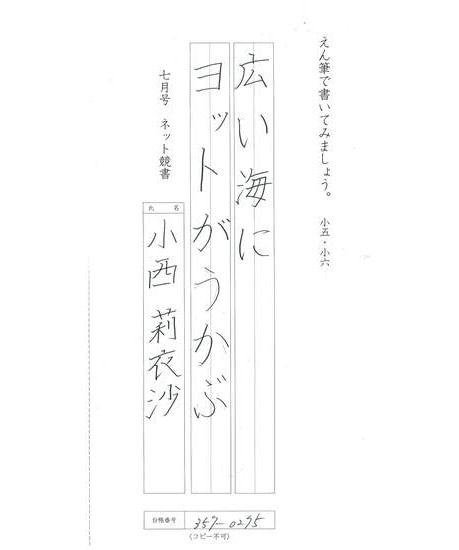 えん筆で書いてみましょう。 小五・小六
広い海に
ヨットがうかぶ
七月号 ネット競書
氏名
小西 莉衣沙
台帳番号 357-0295
(コピー不可)